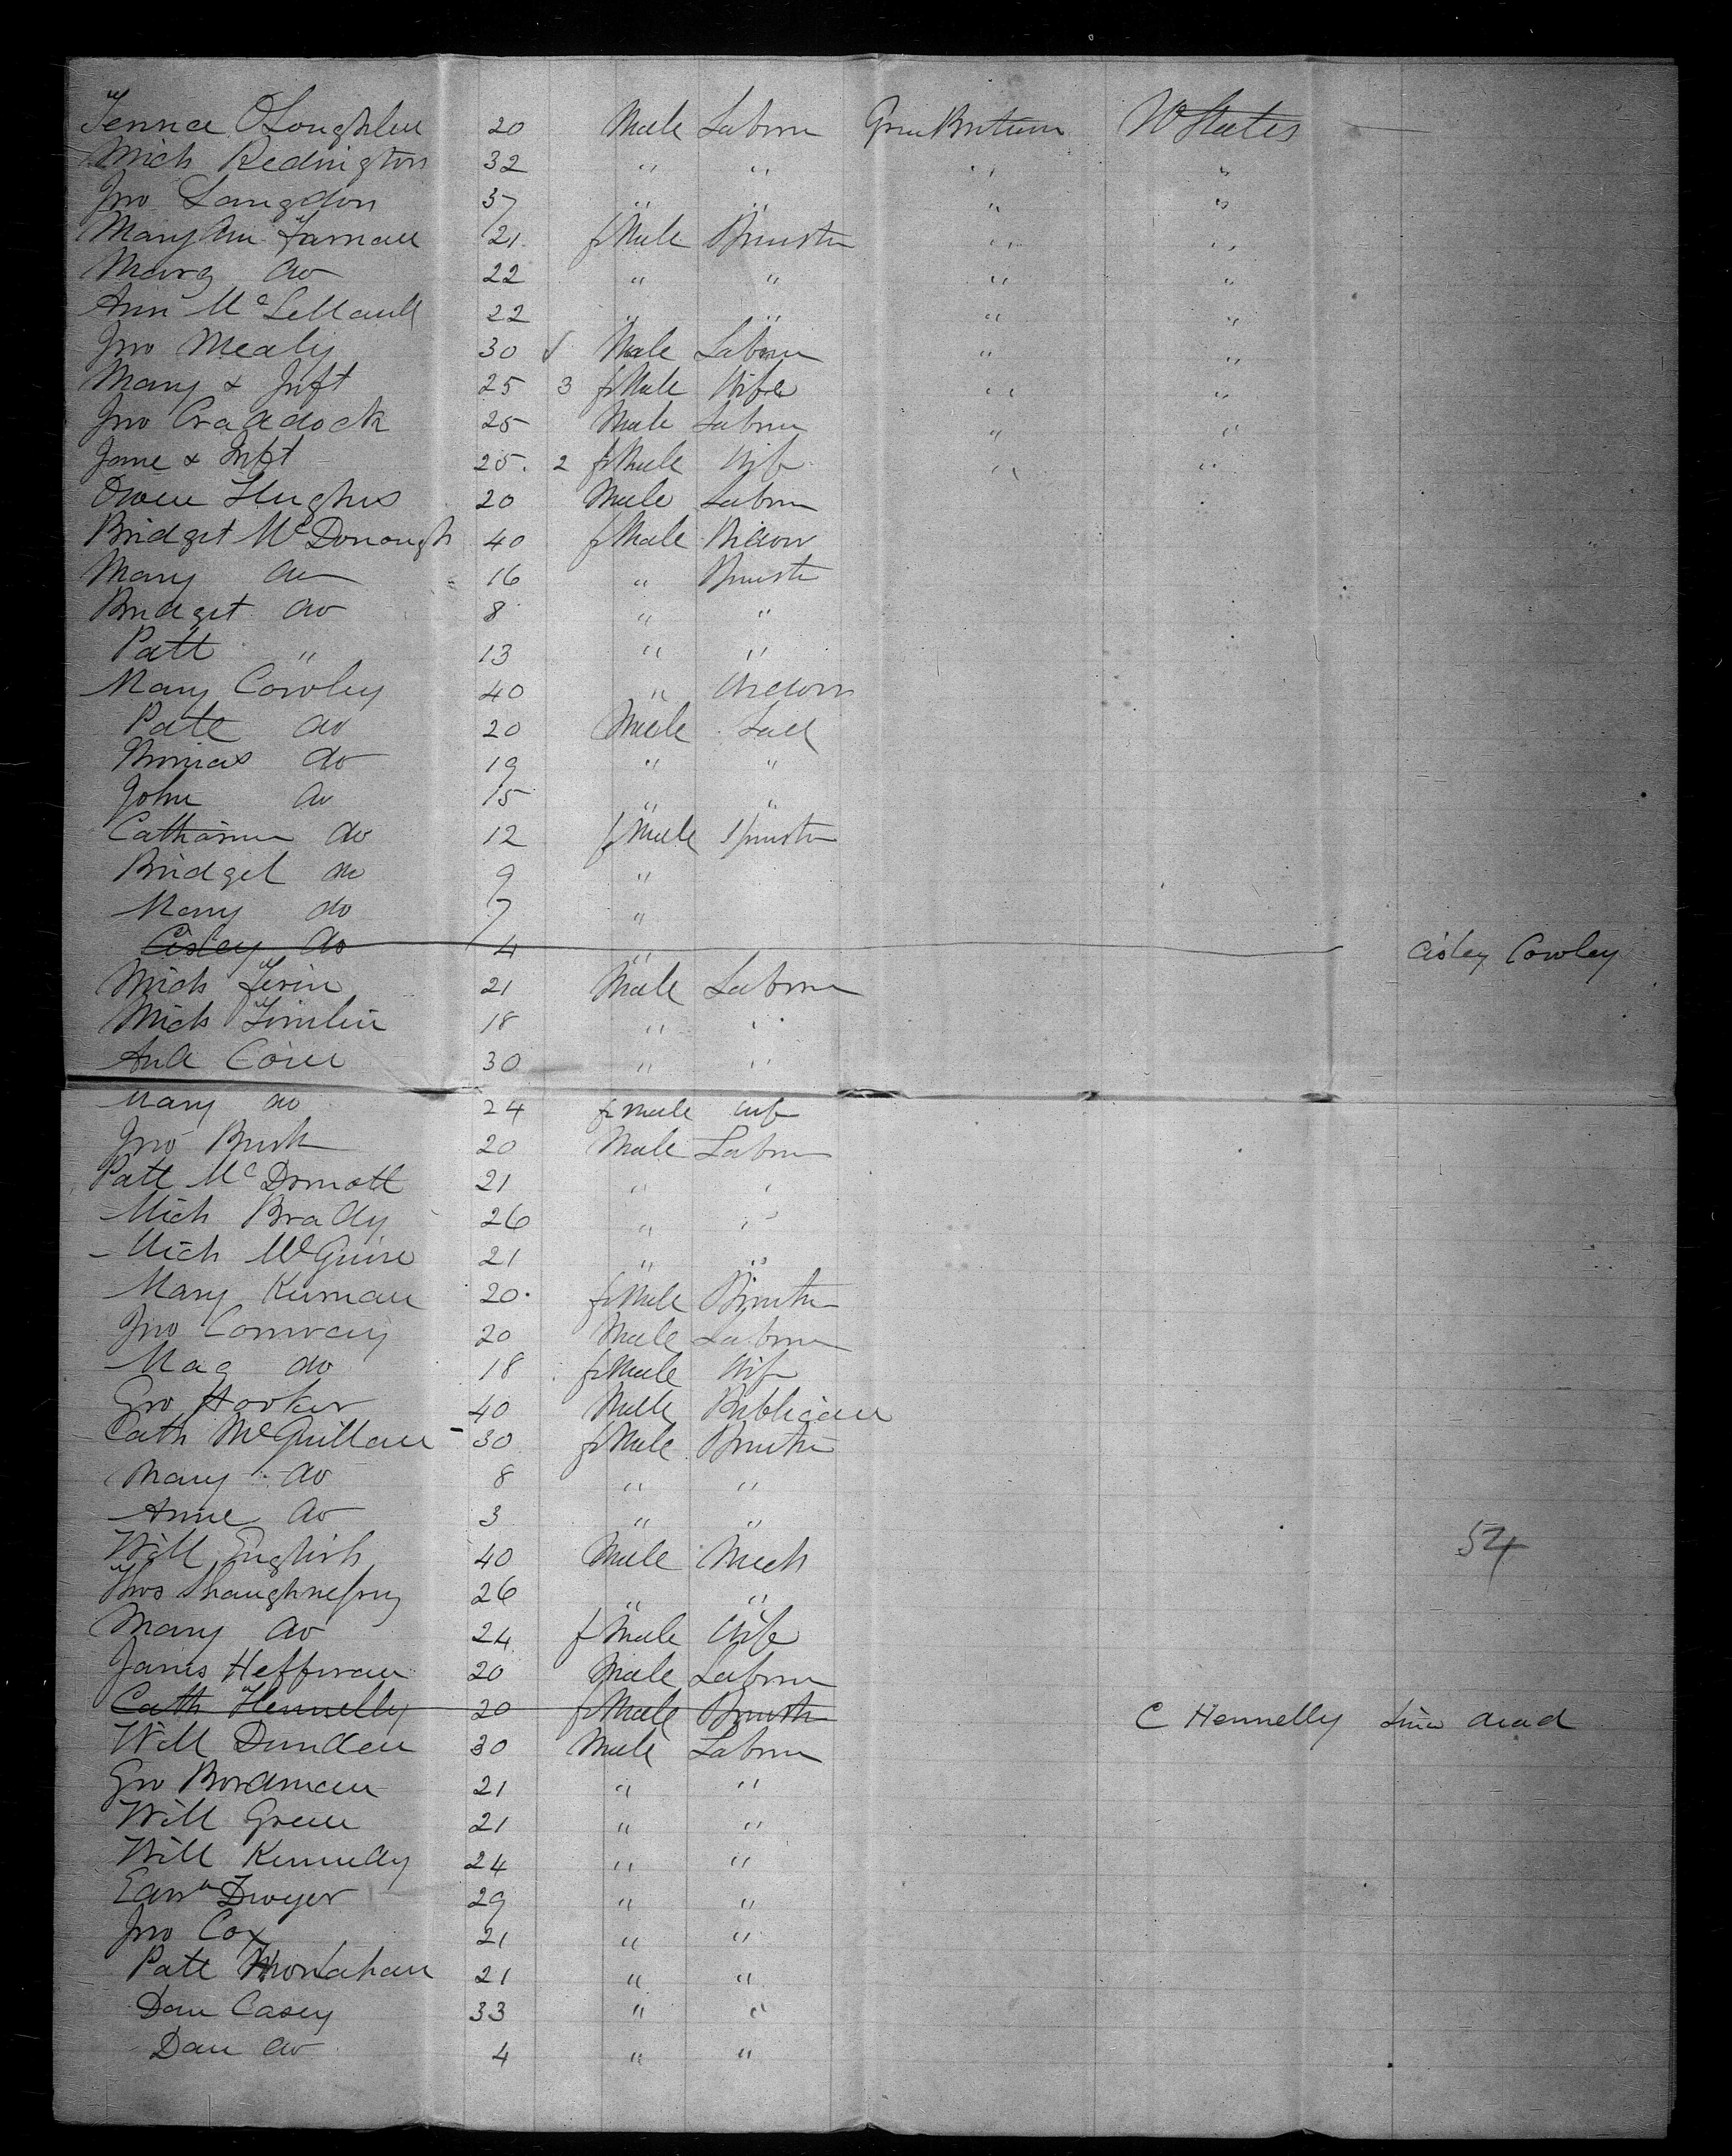 OLoughlin 20 Male Labour Great Britain U States
Mich Redington 32 " " " "
Jno Langdon 37 " " " "
Mary Ann Farnan 21 fMale Spinster " "
Marg do 22 " " " "
Ann Mc 22 " " " "
Jno Mealy 30 Male Labour " "
Mary & Inft 25 3 fMale Wife " "
Jno Craddock 25 Male Labour " "
Jane & Inft 25 2 fMale Wife " "
Owen Hughes 20 Male Labour
Bridget McDonough 40 fMale Widow
Mary do 16 " Spinster
Bridget do 8 " "
Patt " 13 " "
Mary Cowley 40 " Widow
Patt do 20 Male Lad
Thomas do 19 " "
John do 15 " "
Catharine do 12 fMale Spinster
Bridget do 9 "
Mary do 7 "
Cisley do 4 " Cisley Cowley
Mich 21 Male Labour
Mich Timlin 18 " "
30 " "
Mary do 24 fmale wife
Jno 20 Male Labour
Patt McDrmott 21 " "
Mich Brady 26 " "
Mich McGuire 21 " "
Mary Kiernan 20 fMale Spinster
Jno Conway 20 Male Labour
Mag do 18 fMale Wife
Geo Hooker 40 Male Publican
Cath McQuillan 30 fMale Spinster
Mary do 8 " "
Anne do 3 " "
Will English 40 Male Mech 54
Thos Shaughnessy 26 " "
Mary do 24 fMale Wife
James Heffernan 20 Male Labour
Cath Hennelly 20 fMale Spinster C Hennelly since dead
Will Dundon 30 Male Labour
Geo Bordman 21 " "
Will Green 21 " "
Will Kennedy 24 " "
Edwd Dwyer 29 " "
Jno Cox 21 " "
Patt Monahan 21 " "
Dan Casey 33 " "
Dan do 4 " "